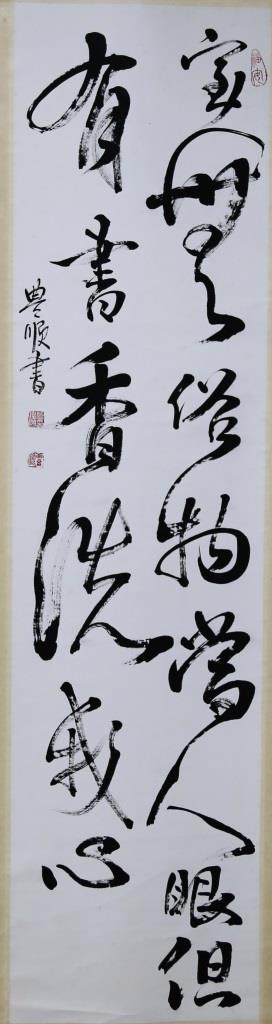 家無俗物當人眼但
有書香洗我心
豊順書